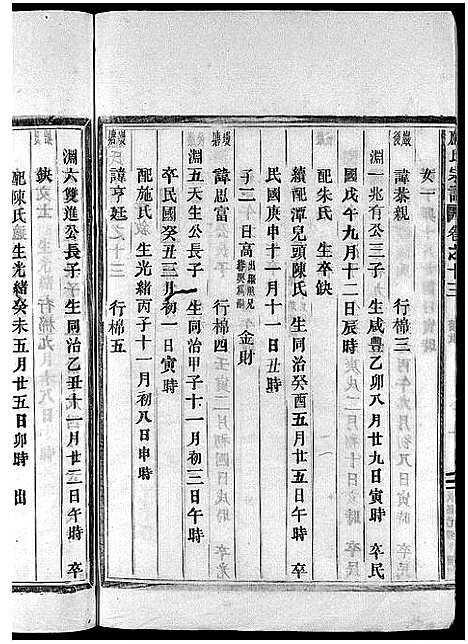 氏宗譜 卷之十三
女一
巖後 諱恭親 行棉三
淵一兆有公三子 生咸豐乙卯八月廿九日寅時 卒民
國戊午九月十二日辰時
配朱氏 生卒缺
續配潭兒頭陳氏 生同治癸酉五月廿五日午時 卒
民國庚申十一月十一日丑時
子二 日高 金財
諱思富 行棉四
淵五天生公長子 生同治甲子十一月初三日午時
卒民國癸丑三月初一日寅時
配施氏 生光緒丙子十一月初八日申時
諱亨廷 行棉五
淵六雙進公長子 生同治乙丑十一月廿三日午時 卒
缺
配陳氏 生光緒癸未五月廿五日卯時 出